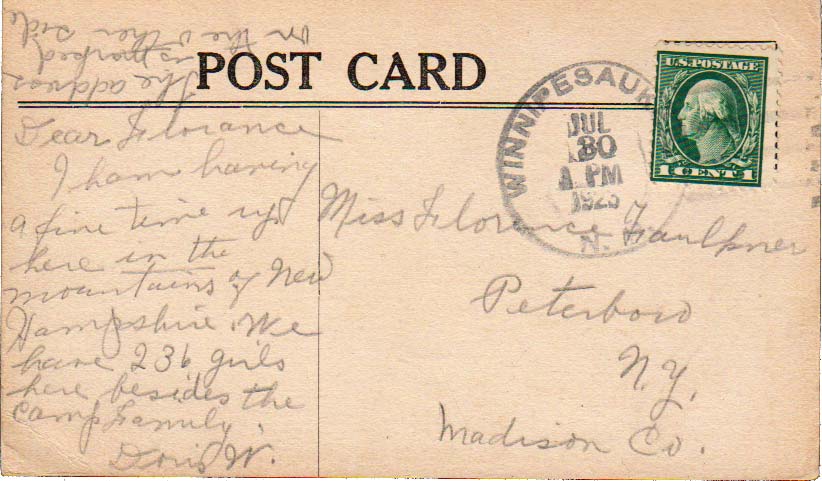 POST CARD
Dear Florance
I ham having
a fine time up
here in the
mountains of New
Hampshire. We
have 236 girls
here besides the
camp family.
Doris W.
The address
is marked
on the other side
WINNIPESAUK
JUL
30
PM
1923
N.H.
U.S. POSTAGE
1 CENT 1
Miss Florence Faulkner
Peterboro
N.Y.
Madison Co.